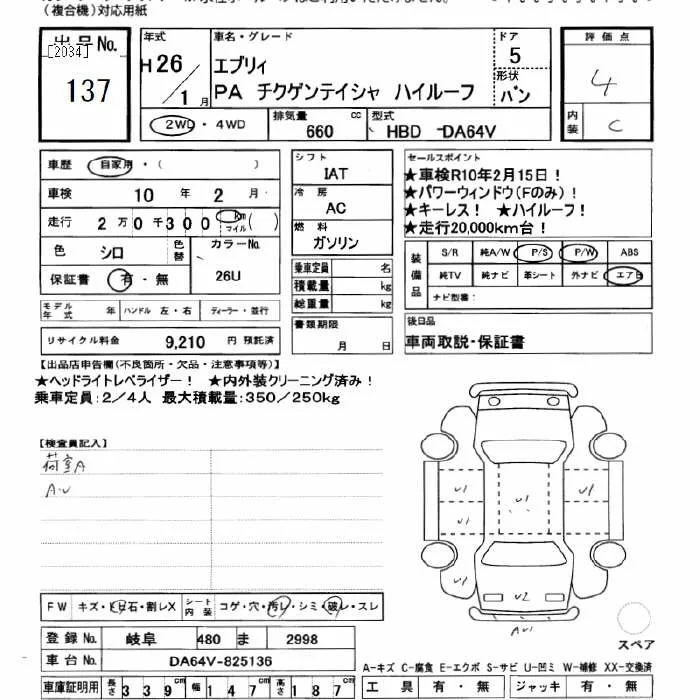 （複合機）対応用紙
出品No.
[2034]
137
年式
H26/1月
車名・グレード
エブリィ
PA チクゲンテイシャ ハイルーフ
ドア
5
形状
バン
評価点
4
内装
C
2WD ・ 4WD
排気量
660 cc
型式
HBD -DA64V
車歴 自家用・（ ）
車検 10 年 2 月
走行 2万0千300 km マイル( )
色 シロ
色替
カラーNo.
26U
保証書 有・無
シフト
IAT
冷房
AC
燃料
ガソリン
乗車定員 名
積載量 kg
総重量 kg
書類期限
月 日
セールスポイント
★車検R10年2月15日！
★パワーウィンドウ（Fのみ）！
★キーレス！ ★ハイルーフ！
★走行20,000km台！
装備品
S/R 純A/W P/S P/W ABS
純TV 純ナビ 革シート 外ナビ エアB
ナビ型番：
モデル年式 年 ハンドル 左・右 ディーラー・並行
リサイクル料金 9,210 円 預託済
後日品
車両取説・保証書
【出品店申告欄(不良箇所・欠品・注意事項等)】
★ヘッドライトレベライザー！ ★内外装クリーニング済み！
乗車定員：2／4人 最大積載量：350／250kg
【検査員記入】
荷室A
A・U
U1
U1
U1
U1
U2
AU1
FW キズ・トビ石・割レX
シート内装 コゲ・穴・汚レ・シミ・破レ・スレ
登録No. 岐阜 480 ま 2998
車台No. DA64V-825136
車庫証明用 長さ 339cm 幅 147cm 高さ 187cm
スペア
A-キズ C-腐食 E-エクボ S-サビ U-凹ミ W-補修 XX-交換済
工具 有・無 ジャッキ 有・無